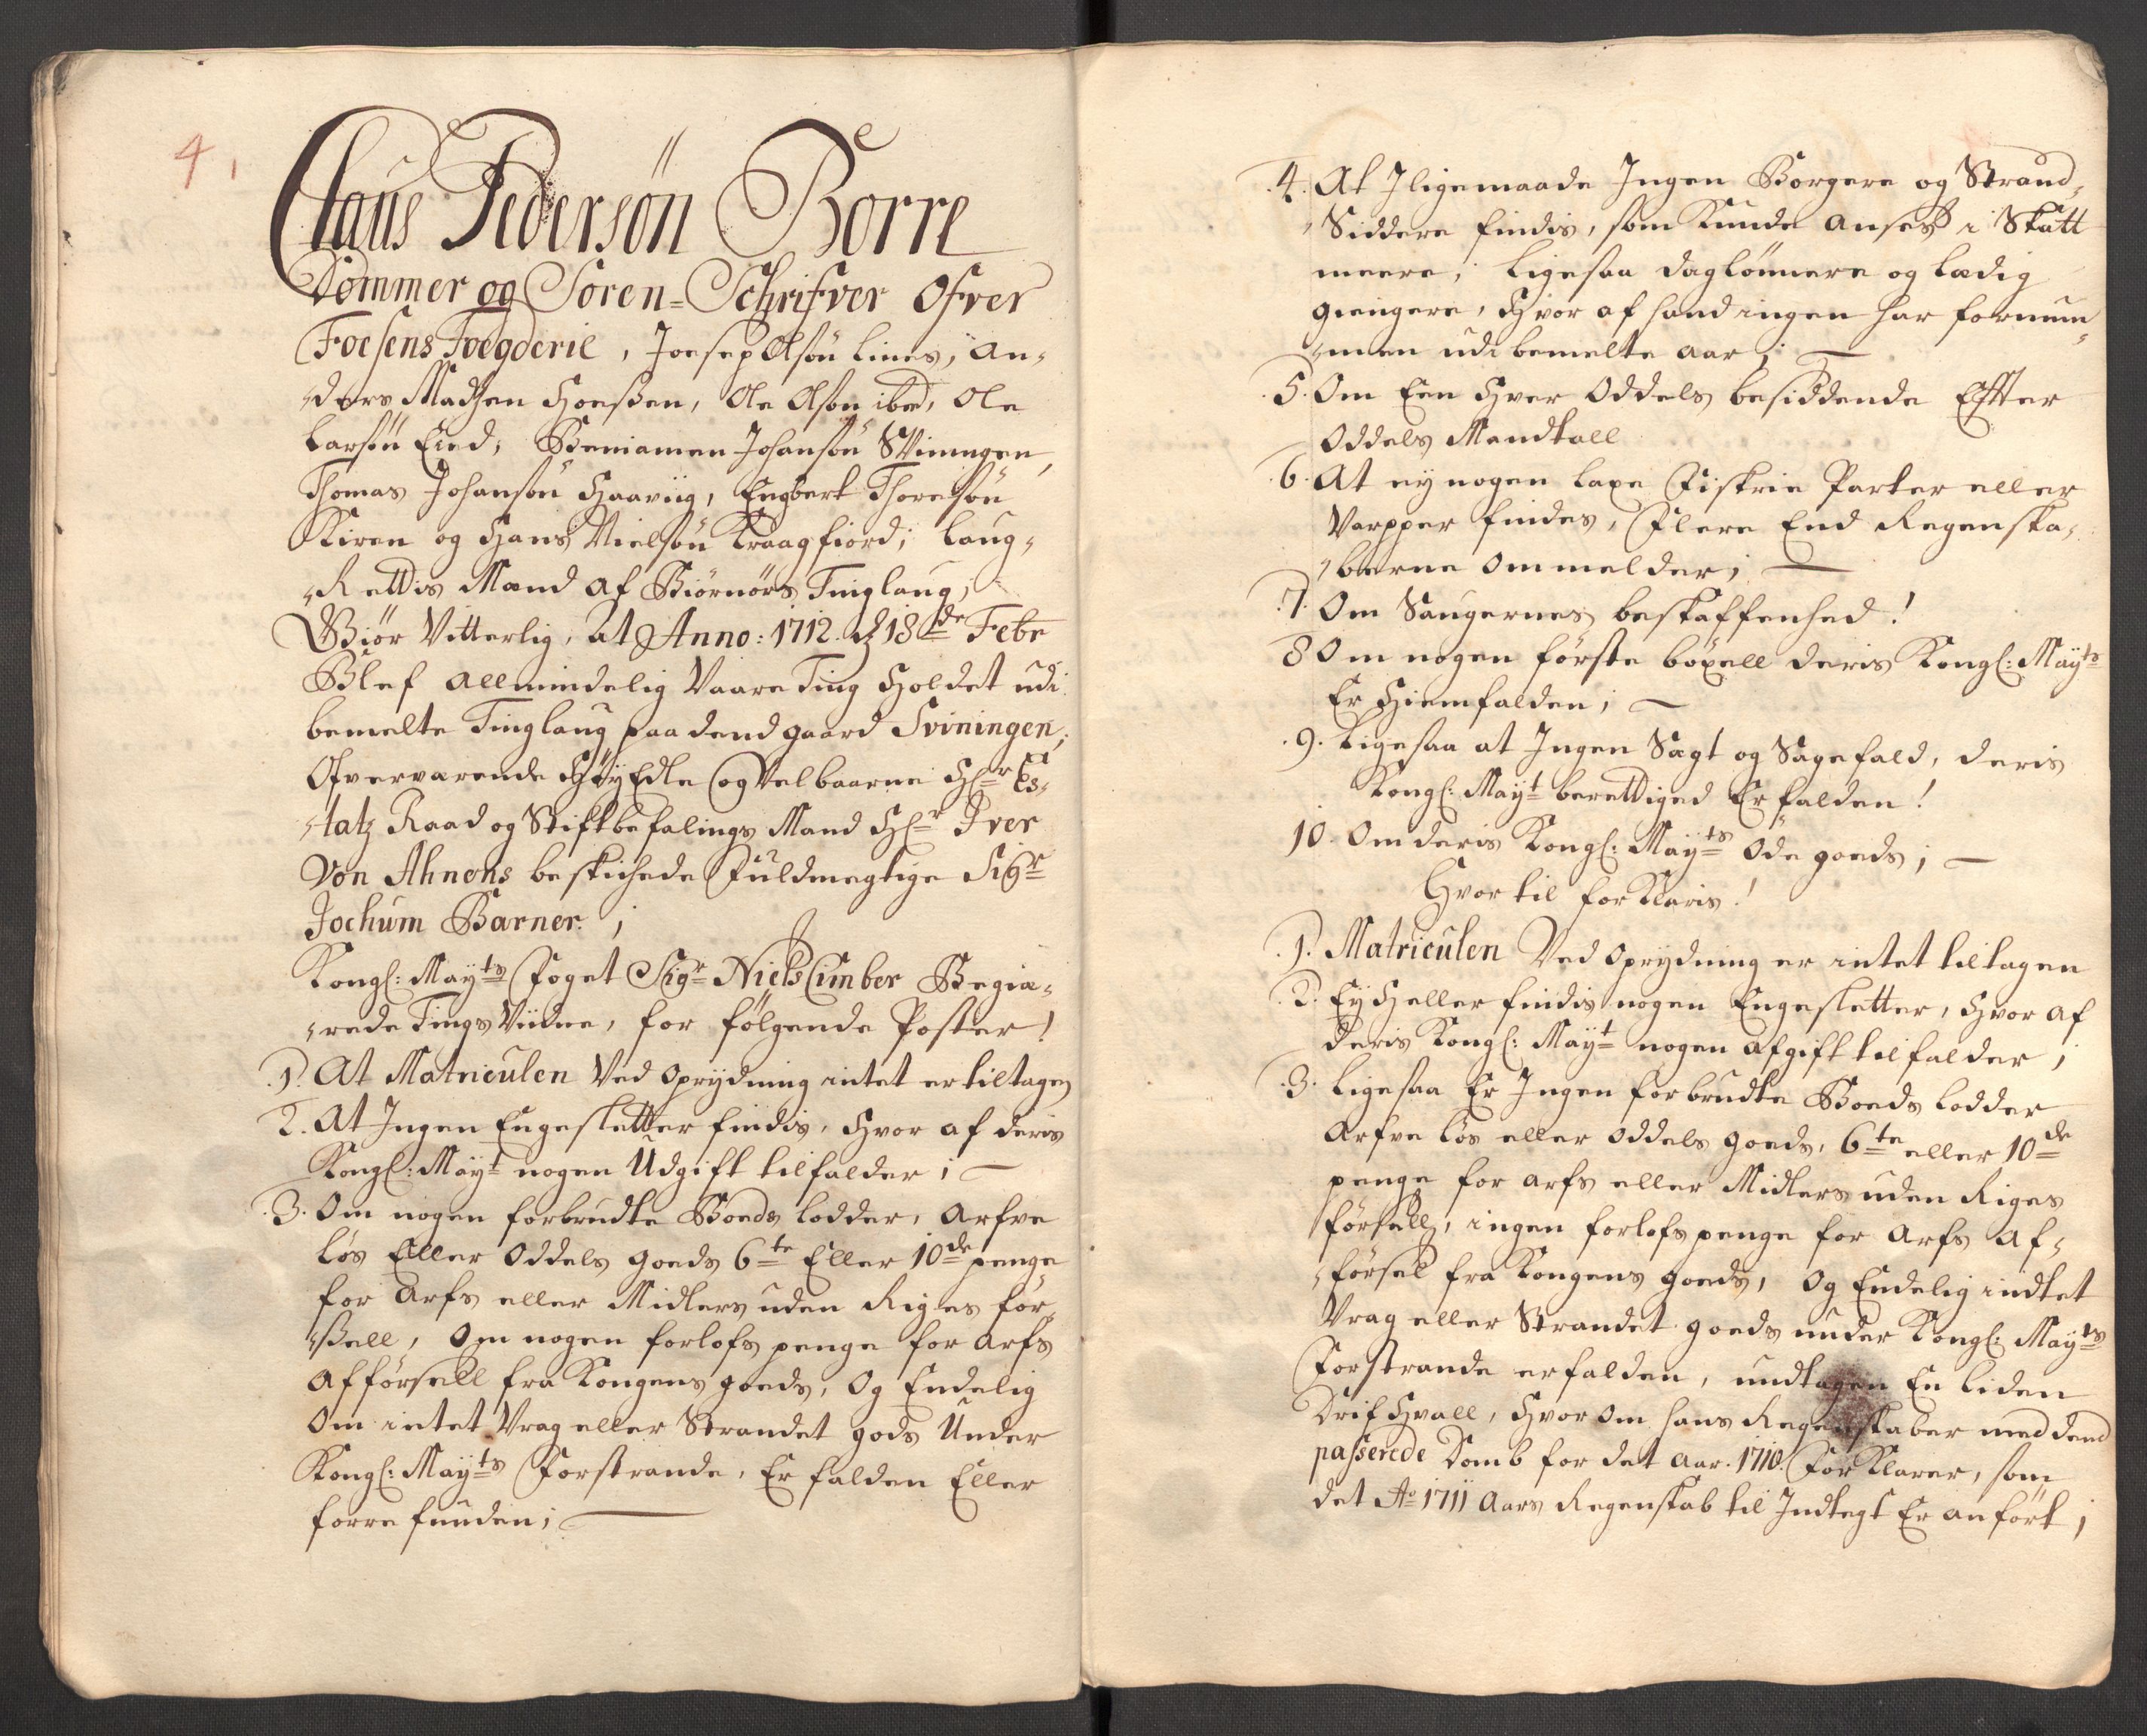 4,
Claus Pedersøn Borre
Dommer og Soren-Schrifver Ofver
Foesens Foegderie, Joesep Olsøn Lines, An-
ders Madsen Hoeßen, Ole Olsøn ibd, Ole
Larsøn Eied, Beniamen Johansøn Sviningen,
Thomas Johansøn Haarviig, Engbert Thoresøn
Kiren og Hans Nielsøn Kraagfiord, Laug-
Rettis Mænd af Biørnørs Tinglaug,
Giør Vitterlig, at Anno: 1712. d 18de Febr
Blef allmindelig Vaare Ting Holdet udi
bemelte Tinglaug paa dend gaard Sviningen,
Ofverværende Høy Edle og Velbaarne Hr Es-
tatz Raad og Stiftbefalings Mand Hr Iver
Von Ahnens beskichede Fuldmegtige Sigr
Jochum Barner,
Kongl: Mayts Foget Sigr Niels Cimber Begiæ-
rede Tings Viidne, for følgende Poster!
1. At Matriculen Ved Oprydning intet er tiltagen
2. At Ingen Engesletter findis, Hvor af deris
Kongl: Mayt nogen Udgift tilfalder; —
3. Om nogen forbrudte Boeds lodder, Arfve
løs Eller Oddels goeds 6te Eller 10de penge
for Arfs eller Midlers uden Riges før-
ßell, Om nogen forlofs penge for Arfs
afførsell fra Kongens goeds, Og Endelig
Om intet Vrag eller Strandet gods Under
Kongl: Mayts Forstrande, Er falden Eller
forre funden; —
4. At Iligemaade Ingen Borgere og Strand-
Siddere findis, som Kunde ansees i Skatt
meere; Ligesaa daglønnere og lædig
giengere, Hvor af hand ingen har fornum-
men udi bemelte aar; —
5. Om Een Hver Oddels besiddende Efter
Oddels Mandtall
6. At ey nogen laxe Fiskrie Parter eller
Varpper findes, Flere End Regenska-
berne Ommelder; —
7. Om Saugernes beskaffenhed!
8 Om nogen første böxell deris Kongl: Mayts
Er Hiemfalden; —
9. Ligesaa at Ingen Sagt og Sagefald, deris
Kongl: Mayt berettiged Er falden!
10. Om deris Kongl: Mayts Øde goeds; —
Hvor til forKlaris!
1. Matriculen Ved Oprydning er intet tiltagen
2. Ey Heller findis nogen Engesletter, Hvor af
deris Kongl: Mayt nogen afgift tilfalder;
3. Ligesaa Er Ingen forbrudte Boeds lodder
Arfve løs eller Oddels goeds, 6te eller 10de
penge for arfs eller Midlers uden Riges
førsell, ingen forlofs penge for Arfs af-
førsel fra Kongens goeds, Og Endelig indtet
Vrag eller Strandet goeds under Kongl: Mayts
Forstrande erfalden, undtagen En liden
Drif Hvall, Hvor om hans Regenskaber med dend
passerede Domb for det Aar. 1710. ForKlarer, som
det Ao 1711 Aars Regenskab til Indtegt Er anført;